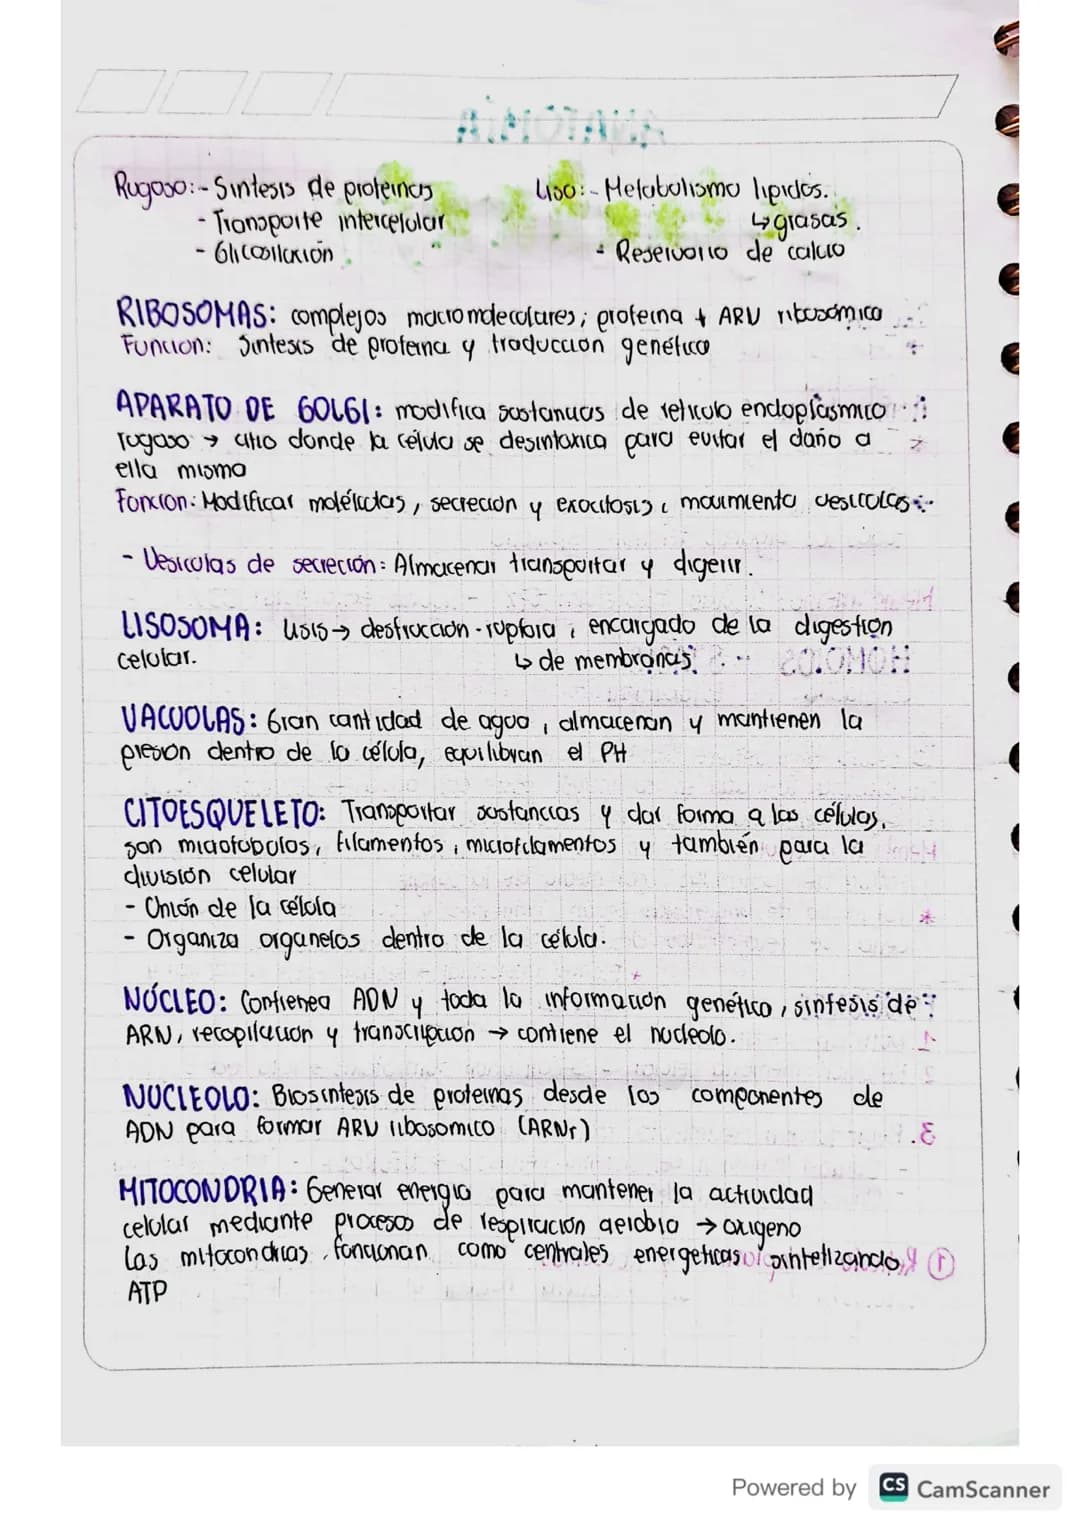 Rugoso:- Sintesis de proteinas
- Transporte intercelular
- Glicosilación
Liso:- Metabolismo lipidos.
↳grasas.
- Reservorio de calcio
RIBOSOMAS: complejos macromoleculares; proteina + ARN ribosómico
Funcion: Sintesis de proteina y traduccion genética
APARATO DE GOLGI: modifica sustancias de reticulo endoplasmico
rugoso → citio donde la célula se desintoxica para evitar el daño a
ella misma
Funcion: Modificar moléculas, secreción y exocitosis, movimiento vesiculas
- Vesiculas de secreción: Almacenar transportar y digerir.
LISOSOMA: Lisis → destrucción - ruptura, encargado de la digestion
celular.
↳ de membranas
VACUOLAS: Gran cantidad de agua, almacenan y mantienen la
presion dentro de la célula, equilibran el PH
CITOESQUELETO: Transportar sustancias y dar forma a las células,
son microtubulos, filamentos, microfilamentos y también para la
división celular
- Unión de la célula
- Organiza organelos dentro de la célula.
NÚCLEO: Contienea ADN y toda la información genético, sintesis de
ARN, recopilación y transcripción → contiene el nucleolo.
NUCLEOLO: Biosintesis de proteinas desde los componentes de
ADN para formar ARN ribosomico (ARNr)
MITOCONDRIA: Generar energia para mantener la actividad
celular mediante procesos de respiración aerobia → oxigeno
Las mitocondrias funcionan como centrales energeticas sintetizando
ATP
Powered by CS CamScanner